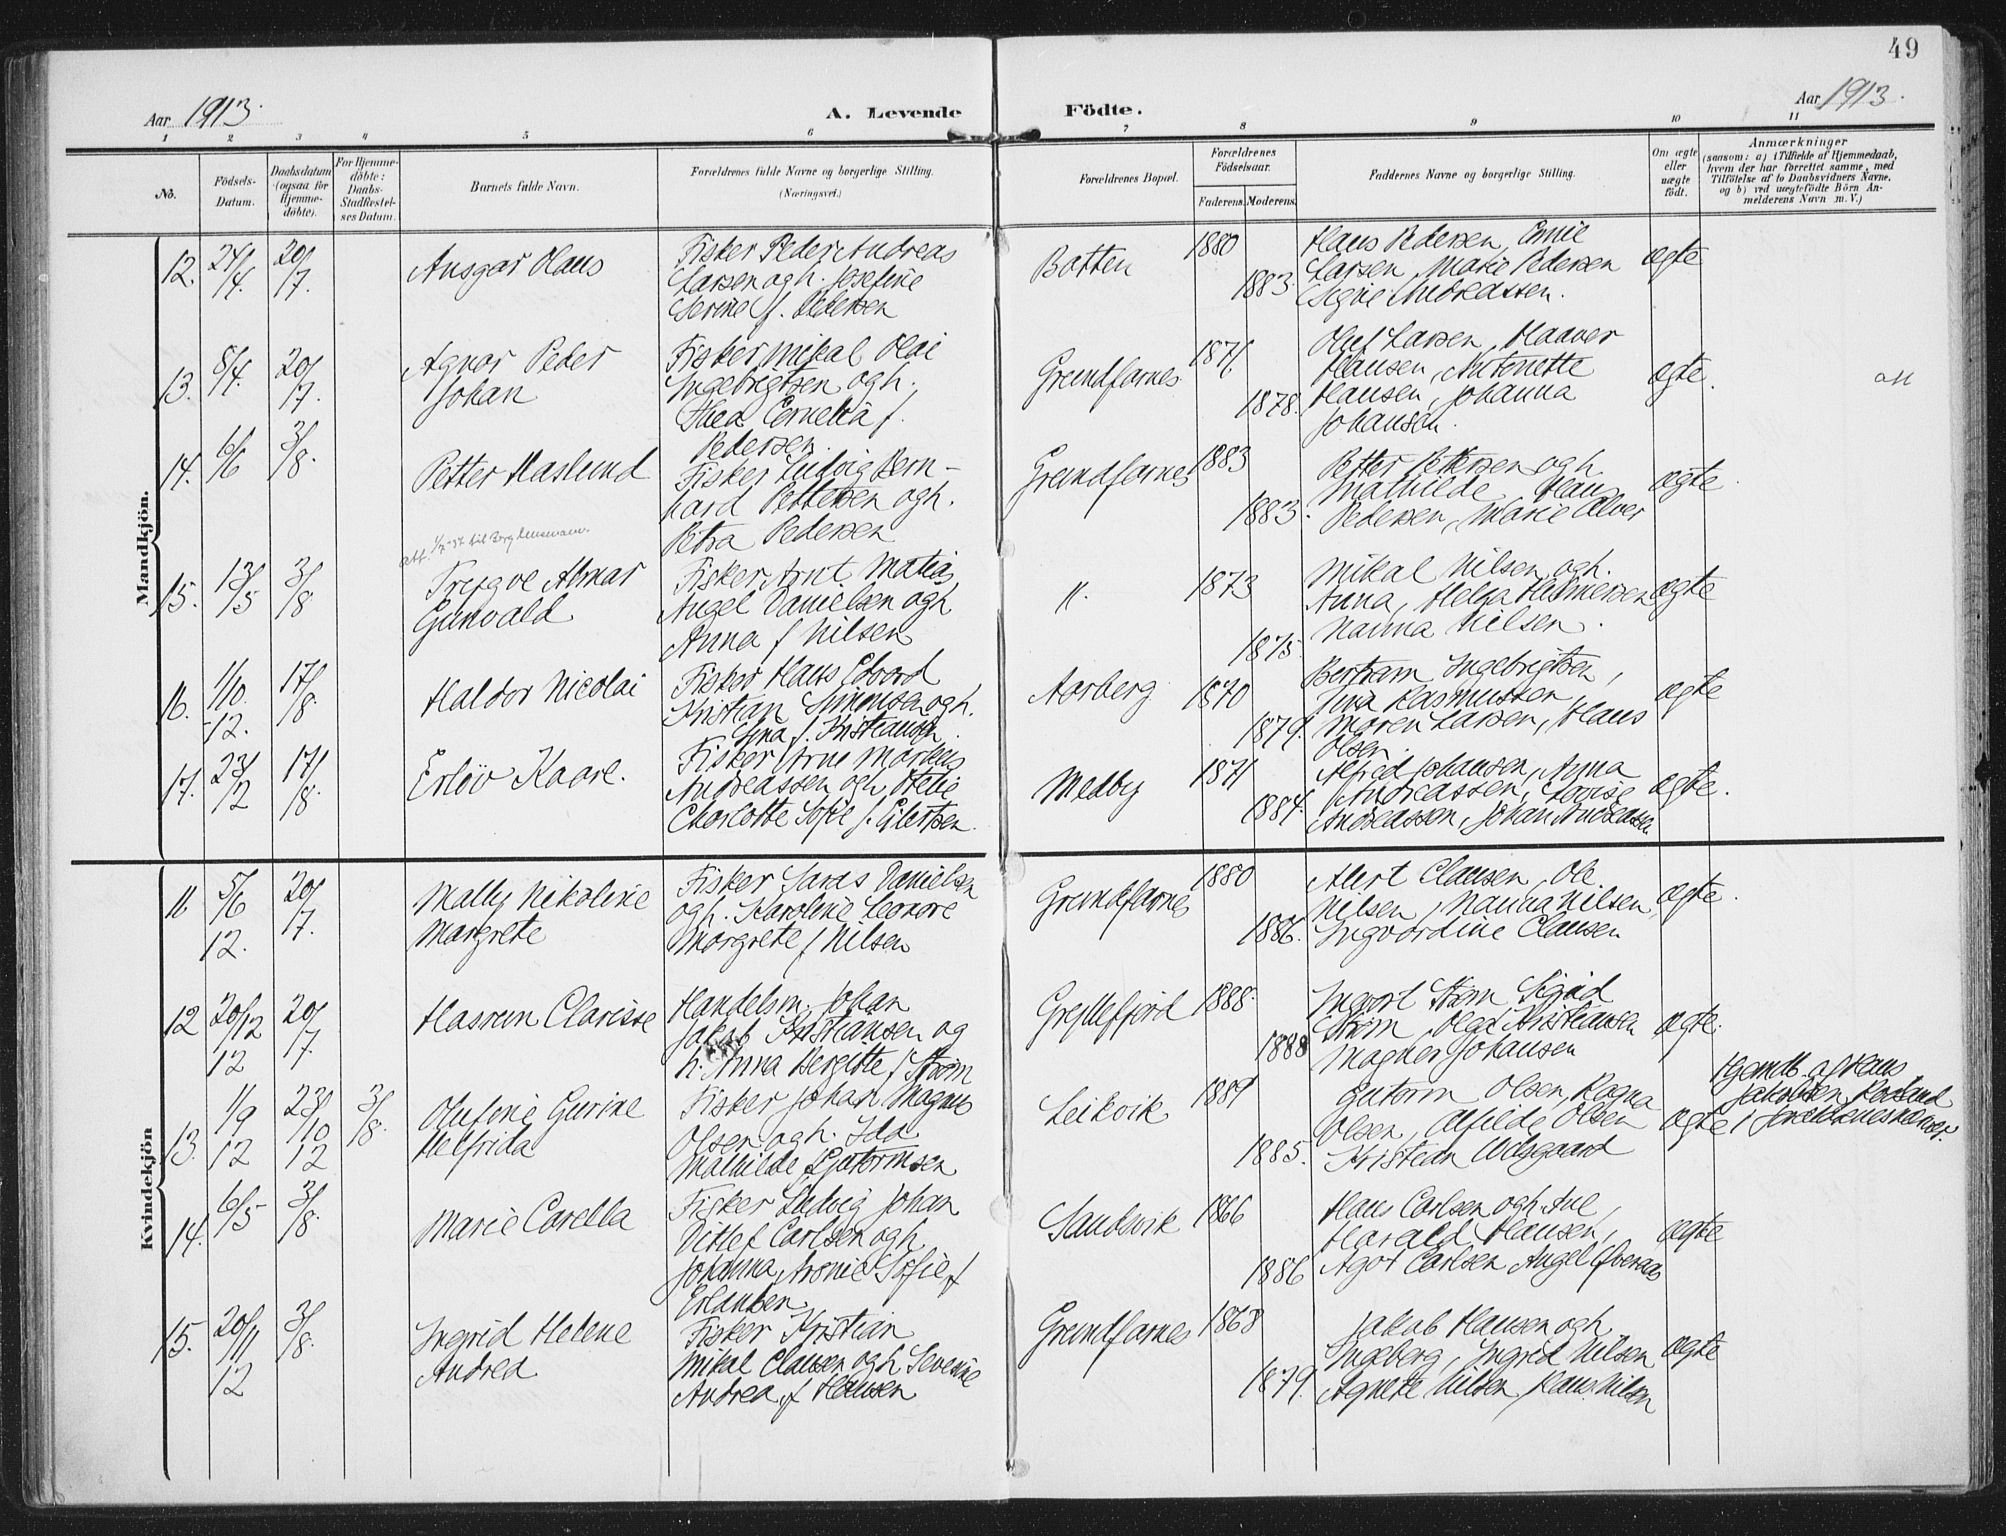 49
Aar 1913.
A. Levende
Födte.
Aar 1913.
1 2 3 4 5 6 7 8 9 10 11
No.
Födsels-Datum.
Daabsdatum (ogsaa for Hjemme-döbte).
For Hjemme-döbte: Daabs-Stadfæstel-ses Datum.
Barnets fulde Navn.
Forældrenes fulde Navne og borgerlige Stilling. (Næringsvei.)
Forældrenes Bopæl.
Forældrenes Födselsaar.
Faderens. Moderens.
Faddernes Navne og borgerlige Stilling.
Om ægte eller uægte födt.
Anmærkninger
(saasom: a) i Tilfælde af Hjemmedaab, hvem der har forrettet samme, med Tilföielse af to Daabsvidners Navne, og b) ved uægtefödte Börn An-melderens Navn m. V.)
Mandkjön.
12. 24/4. 20/7. Ansgar Klaus
Fisker Peder Andreas
Larsen og h. Josefine
Serine f. Pedersen
Botten 1880 1883.
Hans Pedersen, Emil
Larsen, Marie Pedersen
Signe Andreassen.
ægte
13. 8/4. 20/7. Agnar Peder
Johan
Fisker Mikal Olai
Ingebrigtsen og h.
Thea Cornelia f.
Pedersen.
Grundfarnes 1876 1878.
Oluf Larsen, Haaver
Hansen, Antonette
Hansen, Johanna
Johansen.
ægte.
14. 6/6 3/8. Petter Haslund
Fisker Ludvig Bern-
hard Pettersen og h.
Petra Pedersen
Grundfarnes 1883 1883.
Petter Pettersen og h.
Mathilde, Hans
Pedersen, Marie Alver
ægte.
15. 13/5 3/8. Trygve Almar
Gunvald
Fisker Arnt Matias
Angel Danielsen og h.
Anna f Nilsen
". 1873 1875.
Mikal Nilsen og h.
Anna, Helga Hilmersen
Nanna Nilsen.
ægte
16. 1/10.-12. 17/8. Haldor Nicolai
Fisker Hans Edvard
Kristian Simonsen og h.
Gina f. Kristiansen.
Aarberg. 1870 1879.
Bertram Ingebrigtsen,
Rasmussen,
Maren Larsen, Hans
Olsen.
ægte
17. 23/2 17/8. Erlöv Kaare.
Fisker Arne Markus
Andreassen og h. Helie
Charlotte Sofie f. Eilertsen.
Medby 1871 1884.
Alfred Johansen, Anna
Andreassen, Lovise
Andreassen, Johan Andreassen
ægte.
Kvindekjön
11 5/6 12. 20/7. Mally Nikoline
Margrete
Fisker Lars Danielsen
og h. Karoline Leonore
Margrete f Nilsen
Grundfarnes 1880 1886.
Alert Clausen, Ole
Nilsen, Nanna Nilsen,
Ingvardine Clausen
ægte.
12 20/12 12 20/7. Hasrun Clarisse
Handelsm. Johan
Jakob Kristiansen og
h. Anna Bergitte f Ström
Gryllefjord 1888. 1888
Ingvart Ström Sigrid
Ström, Olga Kristiansen
Magner Johansen
ægte.
13. 1/9 12 23/10 12 3/8. Olufine Gurine
Helfrida
Fisker Johan Magnus
Olsen og h. Ida
Mathilde f Gutormsen
Leikvik 1889 1885.
Gutorm Olsen, Ragna
Olsen, Alfilde Olsen
Kristian Odsgaard
ægte
Hjemdb. af Hans
Jakobsen
14. 6/5 3/8. Marie Carella
Fisker Ludvig Johan
Ditlef Carlsen og h.
Johanna Aronie Sofie f
Erlandsen
Sandsvik 1866 1886
Hans Carlsen og h. Ane,
Harald Hansen,
Agot Carlsen Angel Överaas
ægte
15. 20/11 12 3/8. Ingrid Helene
Andrea
Fisker Kristian
Mikal Clausen og h. Severine
Andrea f Hansen
Grundfarnes 1868 1879.
Jakob Hansen og h.
Ingeberg, Ingrid Nilsen
Agnete Nilsen, Hans Nilsen
ægte